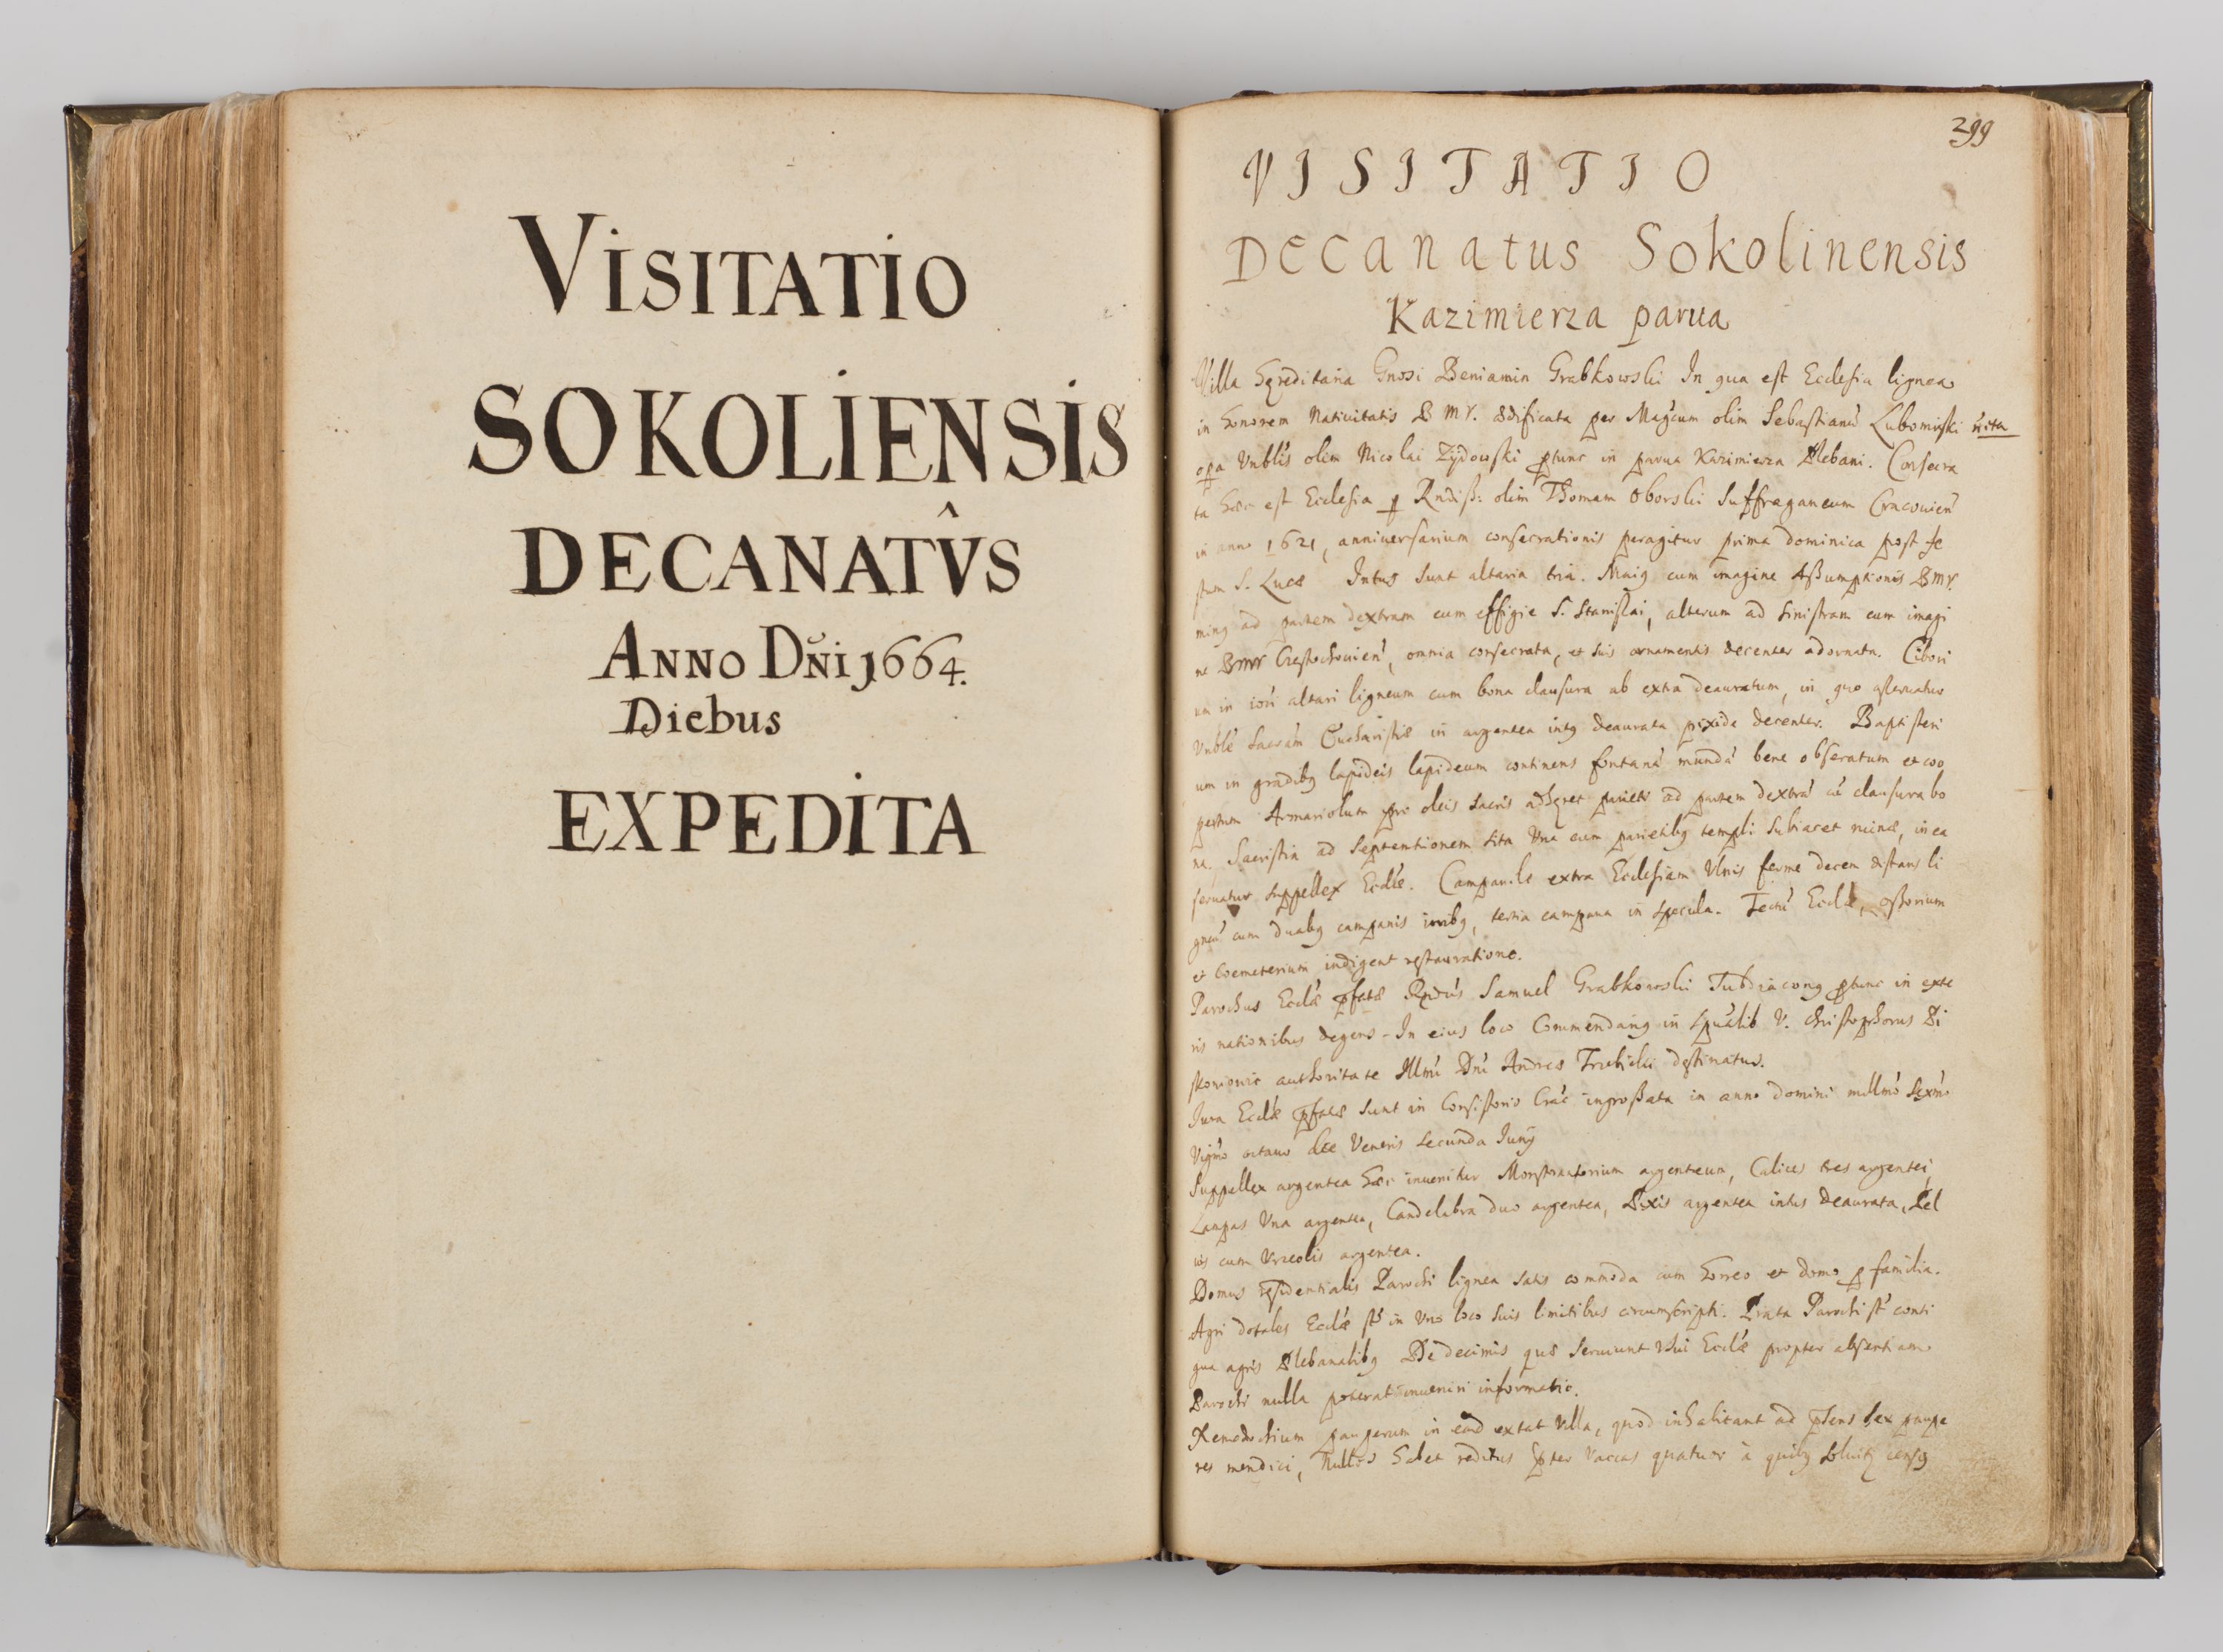 VISITATIO
SOKOLIENSIS
DECANATÛS
ANNO Dñi 1664.
Diebus
EXPEDITA
299
VISITATIO
Decanatus Sokolinensis
Kazimierza parua
Villa Hęreditaria Gnosi Beniamin Grabkowski In qua est Ecclesia lignea
in honorem Natiuitatis B M V. ædificata per Mag̃cum olim Sebastianũ Lubomirski
opa Vnblis olim Nicolai Zydowski ptunc in parua Kazimierza Plebani. Consecra
ta hæc est Ecclesia p Rndiss: olim Thomam Oborski Suffraganeum Cracouień
in anno 1621, anniuersarium consecrationis peragitur prima dominica post fe
stum S. Lucæ Intus sunt altaria tria. Maig cum imagine Assumptionis B M V.
ming ad partem dextram cum effigie S. Stanislai, alterum ad sinistram cum imagi
ne BMV Częstochouień, omnia consecrata, et suis ornamentis decenter adornata. Cibori
um in iori altari ligneum cum bona clausura ab extra deauratum, in quo asseruatur
Vnble Sacram Eucharistiæ in argentea intg deaurata pixide decenter. Baptisteri
um in gradibg lapideis lapideum continens fontanã mundã bene obseratum et coo
pertum Armariolum pro oleis sacris adhęret parieti ad partem dextrã cũ clausura bo
na. Sacristia ad Septentrionem sita Vna cum parietibg templi subiacet ruinæ, in ea
seruatur suppellex Eccliæ. Campanile extra Ecclesiam Vlnis ferme decem distans li
gneũ cum duabg campanis ioribg, tertia campana in specula. Tectũ Eccliæ, ossorium
et Coemeterium indigent restauratione.
Parochus Eccliæ pfatæ Rndus Samuel Grabkowski Subdiacong ptunc in exte
ris nationibus degens - In eius loco Commendarig in spũalib V. Christophorus Bi
skonionis authoritate Illmi Dni Andreæ Trzebicki destinatus.
Iura Eccliæ pfatæ sunt in Consistorio Crac ingrossata in anno domini millmo Sexmo
Vigmo octauo die Veneris secunda Iunij
Suppellex argentea hæc inuenitur Monstrantorium argenteum, Calices tres argentei,
Lampas Vna argentea, Candelabra duo argentea, Pixis argentea intus deaurata, Pel
uis cum Vrceolis argentea.
Domus residentialis Parochi lignea satis commoda cum horreo et domo p familia.
Agri dotales Eccliæ st in Vno loco suis limitibus circumscripti. Prata Parochi st conti
gua agris Plebanalibg De decimis quæ seruiunt vsui Eccliæ propter absentiam
Parochi nulla poterat inueniri informatio.
Xenodochium pauperum in ead extat Villa, quod inhabitant ad psens sex paupe
res mendici, Nullos habet reditus pter vaccas quatuor à quibg soluitg censg